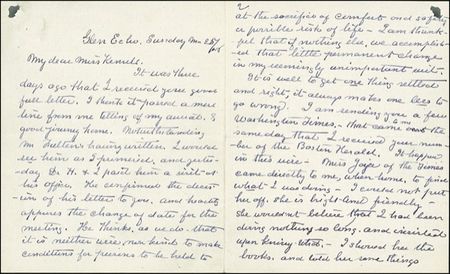 Glen Echo, Tuesday
My dear Miss Kensel.
It was three
days ago that I received your good
full letter. I think it passed a mere
line from me telling of my arrival &
good journey home. Notwithstanding
Mr having written, I would
see him as I promised, and yester-
day Dr. H. & I paid him a visit at
his office. He confirmed the decis-
ion of his letter to you, and heartily
approves the change of date for the
meeting. He thinks, as we do that
it is neither wise, nor kind to make
conditions for persons to be held to
2
at the sacrifice of comfort and safety
or possible risk of life - I am thank-
ful that if nothing else, we accomplish-
ed that little permanent change
in my seemingly unimportant visit.
It is well to get one thing settled
and right, it always makes one less to
go wrong. I am sending you a few
Washington Times, that came out the
same day that I received your num-
ber of the Boston Herald. It happen
in this wise - Miss of the Times
came directly to me, when home, to find
what I was doing - I could not put
her off, she is bright and friendly -
she wouldn't believe that I had been
doing nothing so long, and insisted
upon knowing what - I showed her the
books, and told her some things